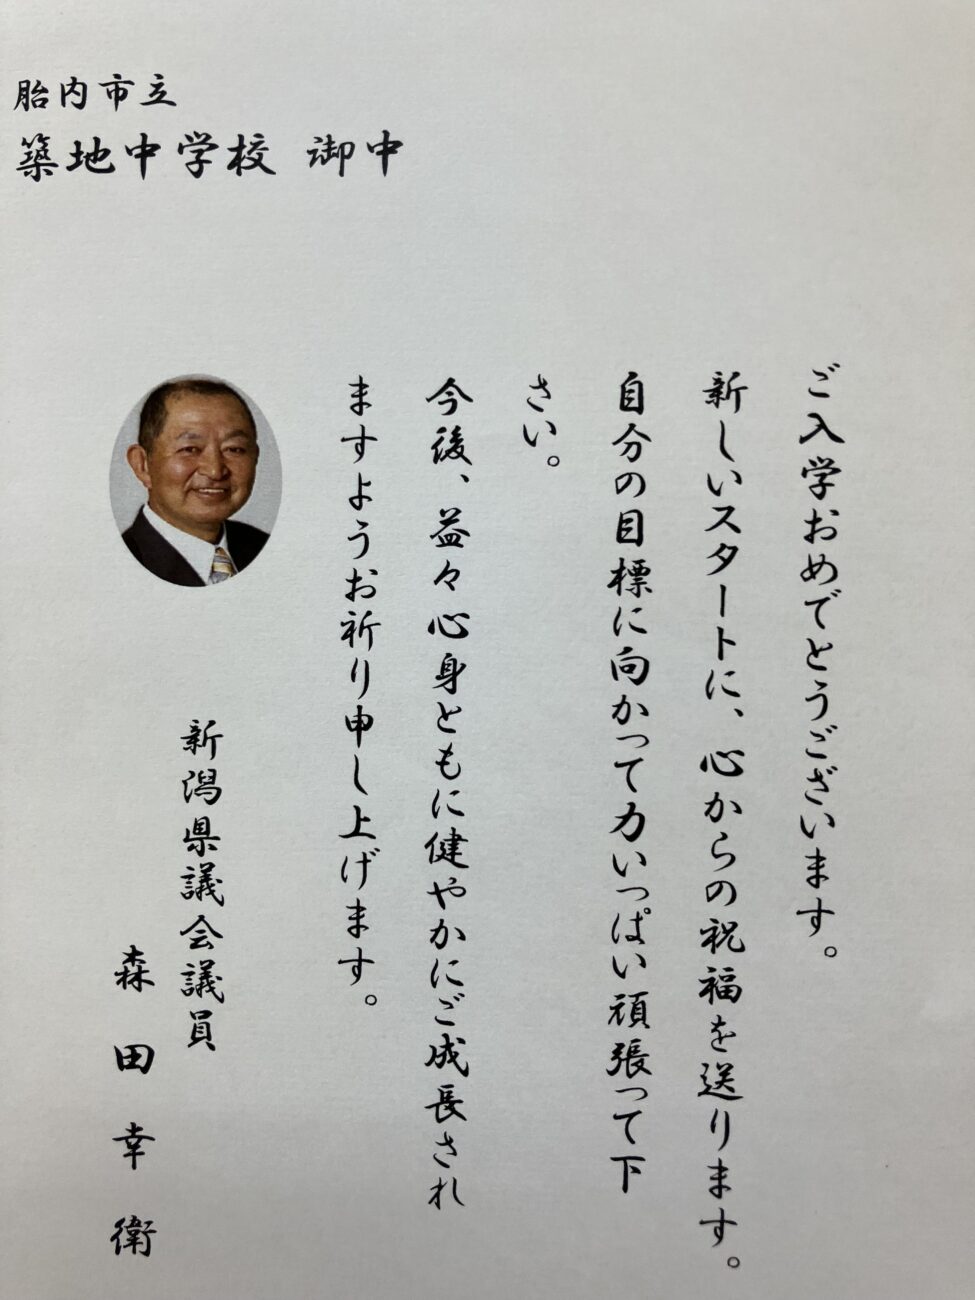 胎内市立
築地中学校 御中
ご入学おめでとうございます。
新しいスタートに、心からの祝福を送ります。
自分の目標に向かって力いっぱい頑張って下
さい。
今後、益々心身ともに健やかにご成長され
ますようお祈り申し上げます。
新潟県議会議員
森田幸衛